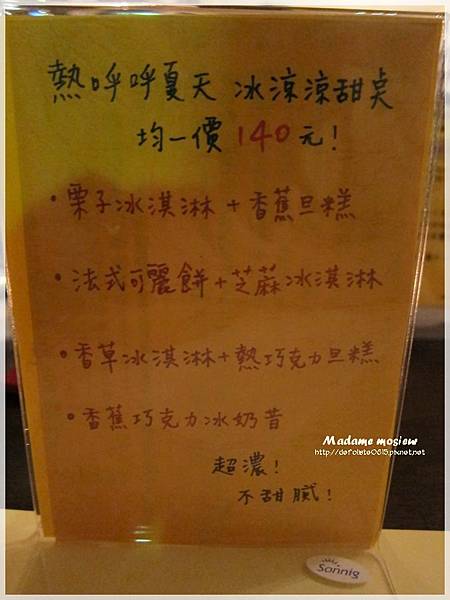 熱呼呼夏天 冰涼涼甜桌
均一價 140 元!
•栗子冰淇淋+香蕉旦糕
•法式可麗餅+芝麻冰淇淋
•香草冰淇淋+熱巧克力旦糕
•香蕉巧克力冰奶昔
超濃!
不甜膩!
Madame mosiew
http://defoliate0615.pixnet.net
Sonnig